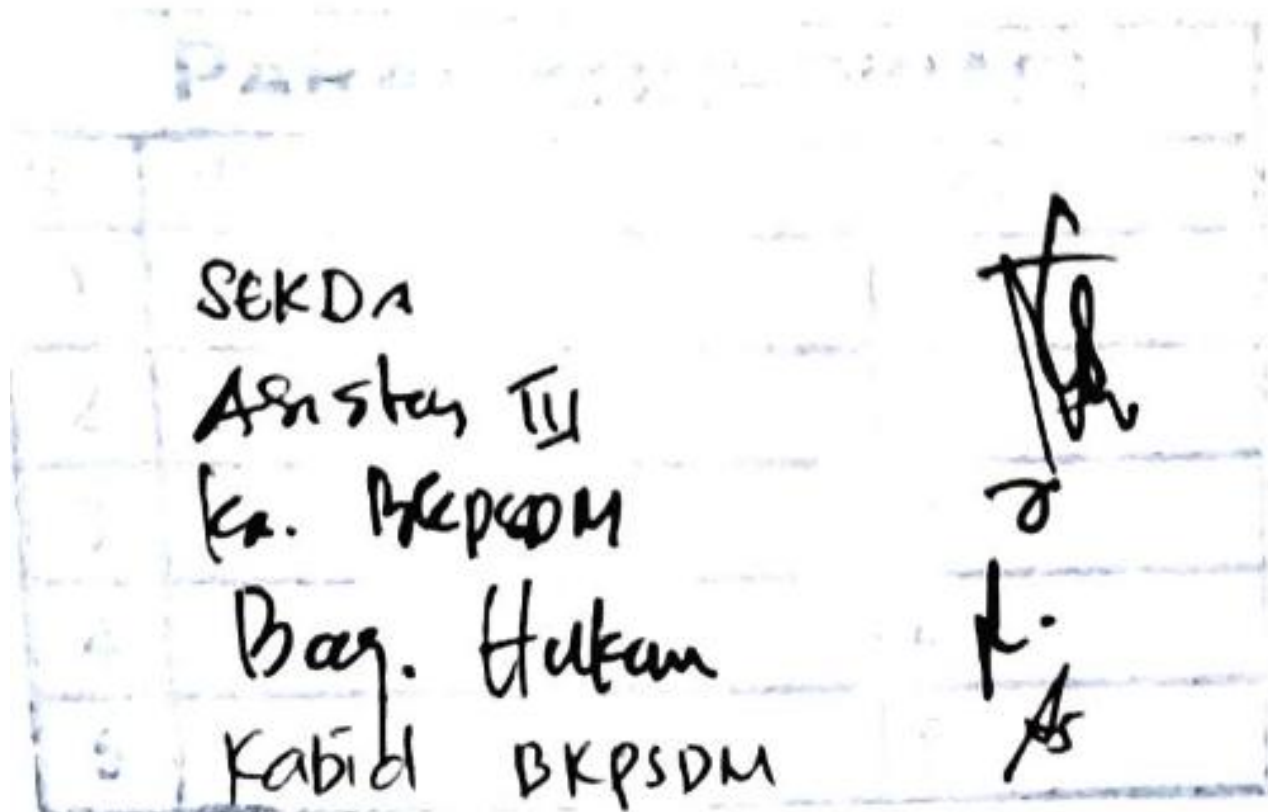 SEKDA
Asisten III
Ka. BKPSDM
Bag. Hukum
Kabid BKPSDM